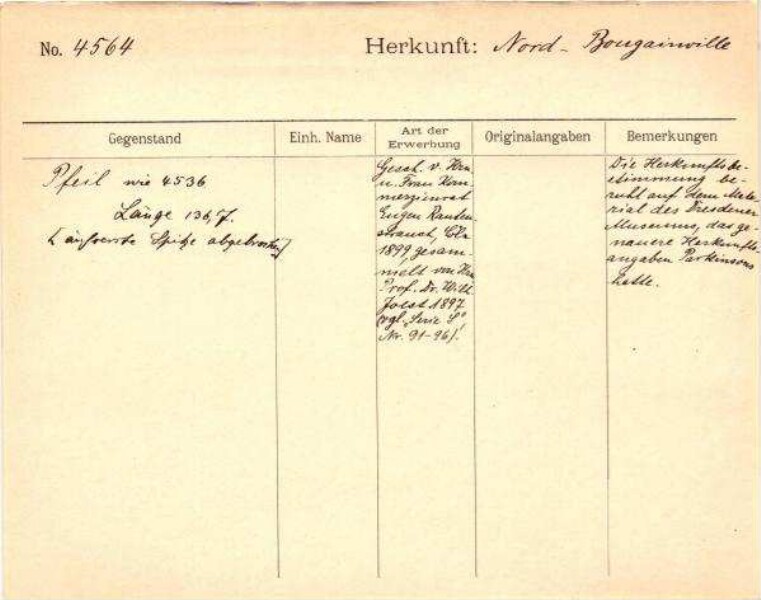 No. 4564
Herkunft: Nord-Bougainville
Gegenstand
Einh. Name
Art der
Erwerbung
Originalangaben
Bemerkungen
Pfeil wie 4536
Länge 136,7.
[äußerste Spitze abgebrochen]
Gesch. v. Hrn
u. Frau Kom-
merzienrat
Eugen Rauten-
strauch, Cln
1899, gesam-
melt von Hn
Prof. Dr. W.
Joest 1897
(vgl. "Serie S"
Nr. 91-96).
Die Herkunftsbe-
stimmung be-
ruht auf dem Mate-
rial des Dresdener
Museums, das ge-
nauere Herkunfts-
angaben Parkinsons
hatte.